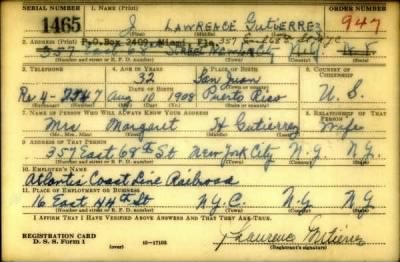 SERIAL NUMBER 1. NAME (Print) ORDER NUMBER
1465 J LAWRENCE GUTIERREZ 947
(First) (Middle) (Last)
2. ADDRESS (Print) P.O. Box 2409, Miami Fla 357
357 Street New York City N.Y. N.Y.
(Number and street or R. F. D. number) (Town) (County) (State)
3. TELEPHONE 4. AGE IN YEARS 5. PLACE OF BIRTH 6. COUNTRY OF CITIZENSHIP
32 San Juan
Re 4-7847 DATE OF BIRTH Puerto Rico U.S.
Aug 10 1908
(Exchange) (Number) (Mo.) (Day) (Yr.) (State or country)
7. NAME OF PERSON WHO WILL ALWAYS KNOW YOUR ADDRESS 8. RELATIONSHIP OF THAT PERSON
Mrs. Margaret H Gutierrez Wife
(Mr., Mrs., Miss) (First) (Middle) (Last)
9. ADDRESS OF THAT PERSON
357 East 68th St New York City N.Y. N.Y.
(Number and street or R. F. D. number) (Town) (County) (State)
10. EMPLOYER'S NAME
Atlantic Coast Line Railroad
11. PLACE OF EMPLOYMENT OR BUSINESS
16 East 44th St N.Y.C. N.Y. N.Y.
(Number and street or R. F. D. number) (Town) (County) (State)
I AFFIRM THAT I HAVE VERIFIED ABOVE ANSWERS AND THAT THEY ARE TRUE.
REGISTRATION CARD
D. S. S. Form 1 (over) 16-17105
J Lawrence Gutierrez
(Registrant's signature)